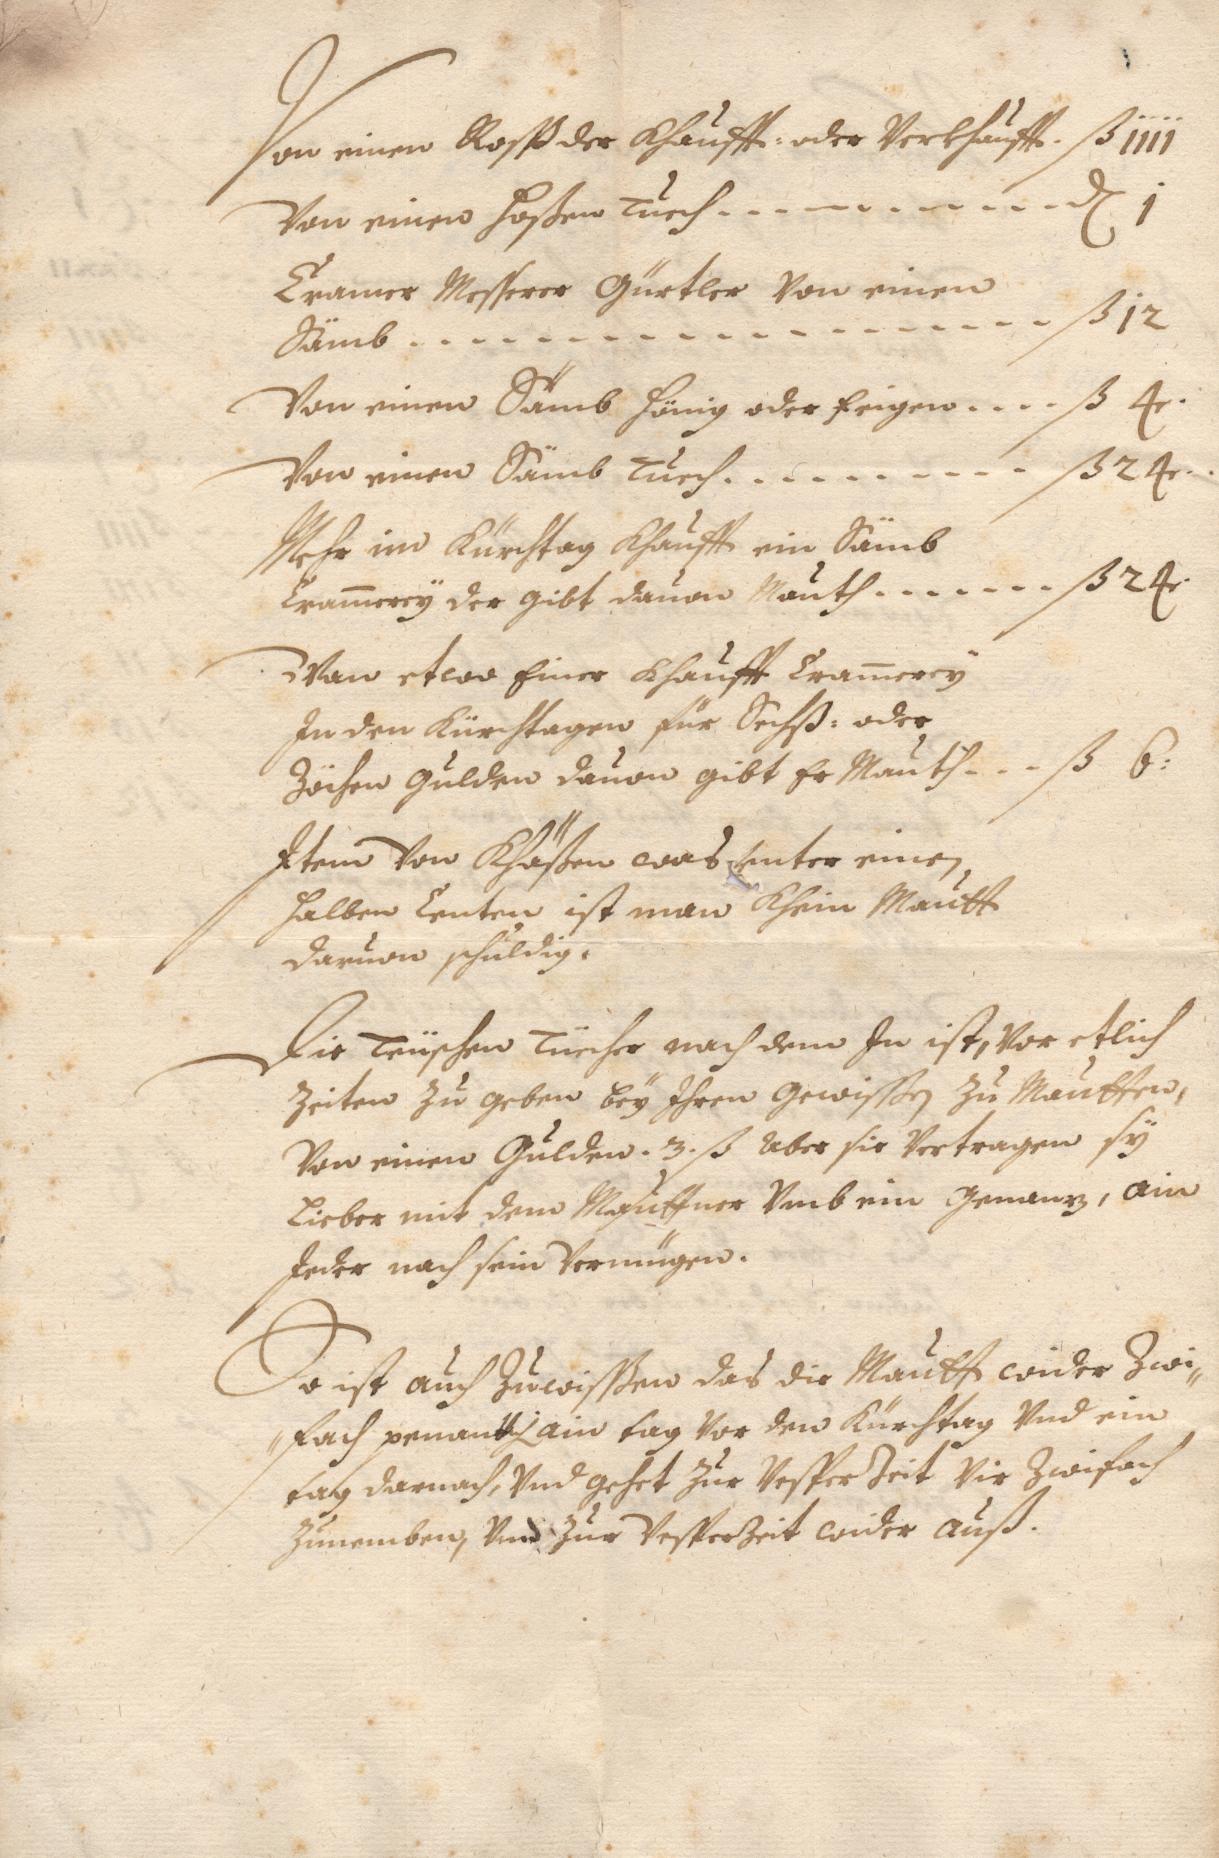 Von einen Roß der Khaufft: oder Verkhaufft. ß iiii
Von einen hoßen Tuech - - - - - - - - - - - ₰ 1
Cramer Messerer Gürtler Von einen
Sämb - - - - - - - - - - - - - - - - - - ß 12
Von einen Sämb hönig oder feigen - - - - ß 4.
Von einen Sämb Tuech - - - - - - - - - - ß 24.
Mehr im Kürchtag Khaufft ein Sämb
Cram̄erey der gibt dauon Mauth - - - - - - - ß 24.
Wan etwo Einer Khaufft Cram̄erey
In den Kürchtagen für Sechß: oder
Zöchen Gulden dauon gibt Er Mauth - - - ß 6:
Item Von Khäßen was unter einen
halben Centen ist man Khein Mautt
daruon schuldig.
Die Teüschen Tüecher nach dem In ist, Vor etlich
Zeiten Zu geben bey Ihren Gewissen Zu Mautten,
Von einen Gulden. 3. ß Aber sie Vertragen sy
Lieber mit dem Mauttner Vmb ein Genanz, ain
Jeder nach sein Vermügen.
So ist auch Zuwissen das die Mautt wider Zwi„
„fach ain tag Vor den Kürchtag Vnd ein
tag darnach, Vnd gehet Zur Vesper Zeit Zwifach
Zunemben, Vnd Zur Vesperzeit wider auß.